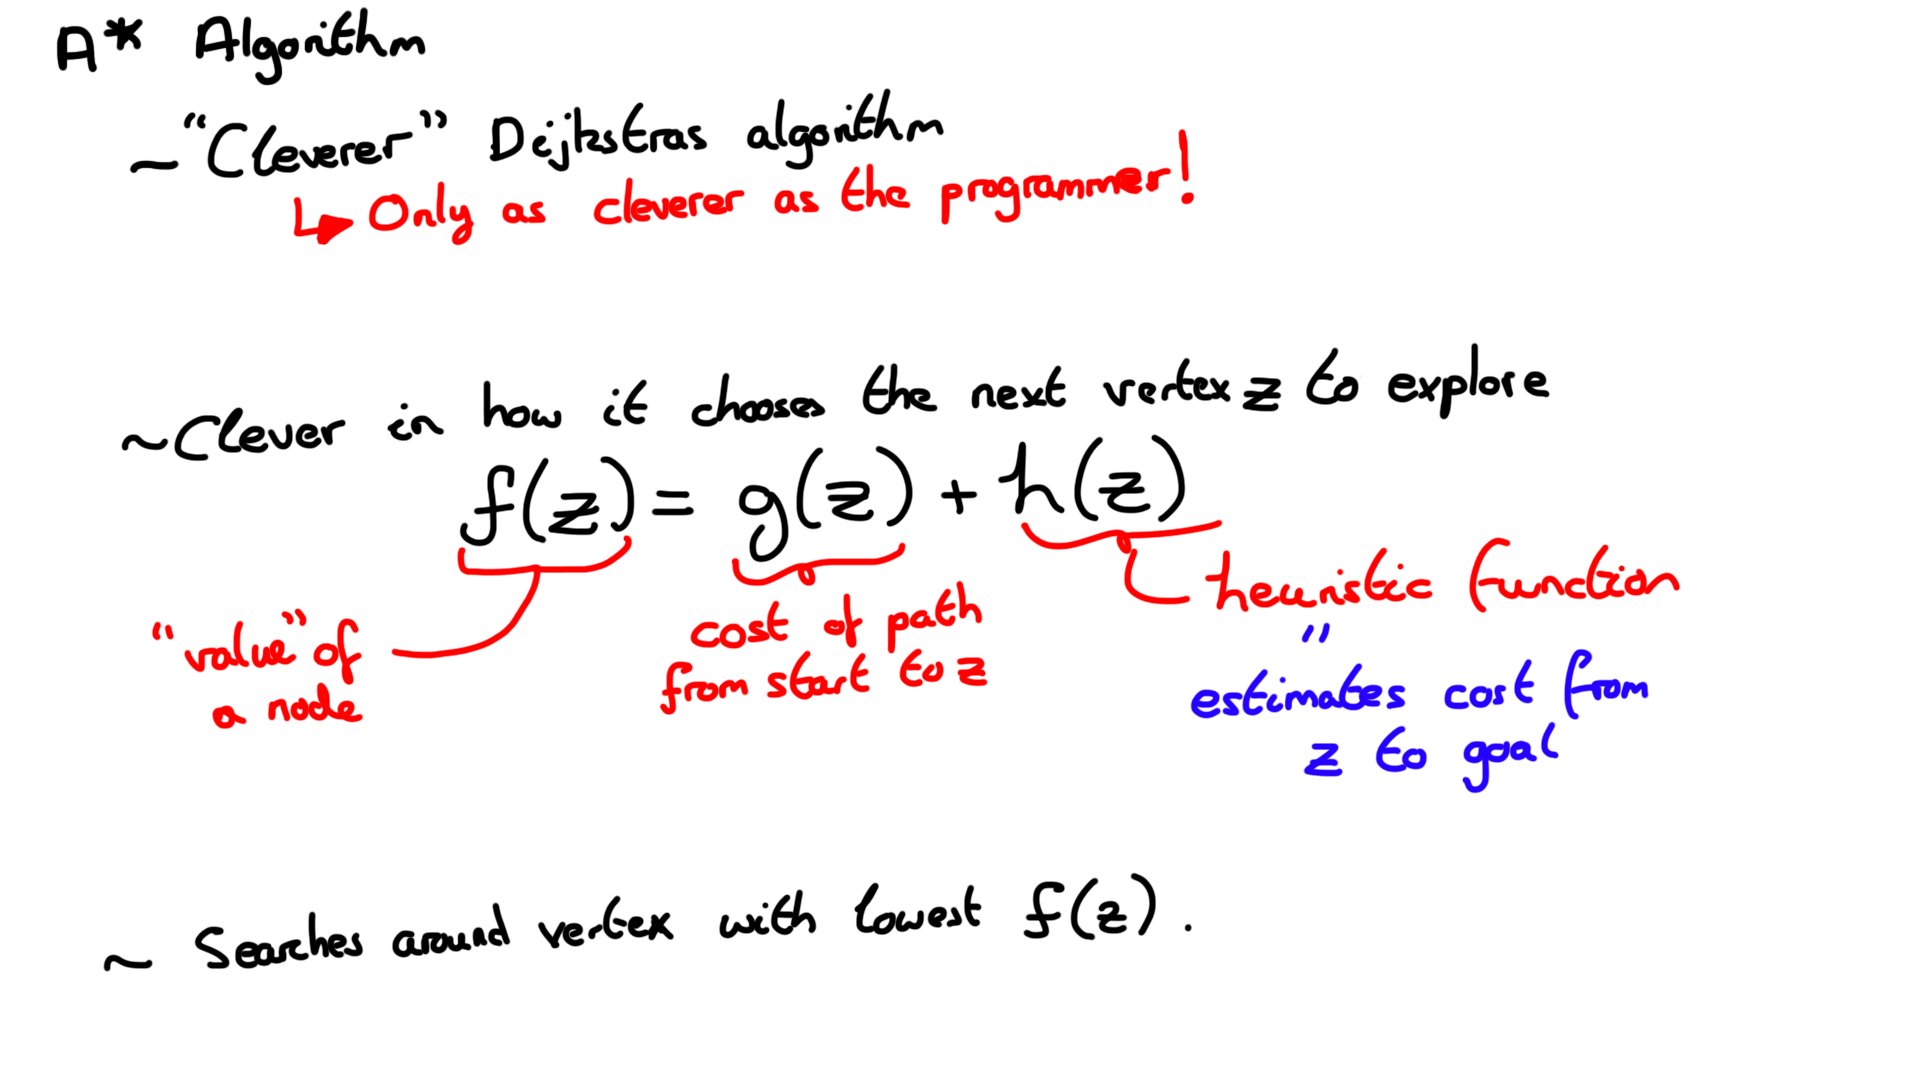 A* Algorithm
~ "Cleverer" Dijkstras algorithm
↳ Only as cleverer as the programmer!
~ Clever in how it chooses the next vertex z to explore
f(z) = g(z) + h(z)
heuristic function
"value" of
a node
cost of path
from start to z
"
estimates cost from
z to goal
~ Searches around vertex with lowest f(z).